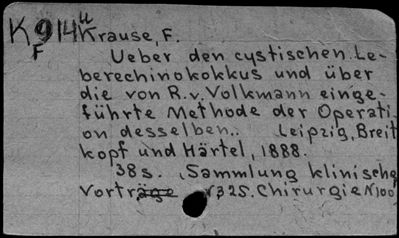 K 914 u Krause, F.
F
Ueber den cystischen Le-
berechinokokkus und über
die von R.v.Volkmann einge-
führte Methode der Operati-
on desselben.. Leipzig, Breit
kopf und Härtel, 1888.
38s. (Sammlung klinische
Vorträge N325. Chirurgie N100